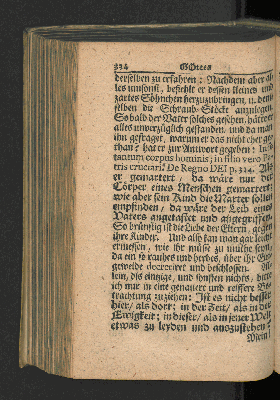 334
derselben zu erfahren: Nachdem aber al-
les umsonst, befiehlt er dessen kleines und
zartes Söhnchen herzuzubringen, u. dem-
selben die Schraub-Stöck anzulegen
So bald der Vatter solches gesehen, hätte er
alles unverzüglich gestanden, und da man
ihn gefraget, warum er das nicht eher ge-
than? hat er zur Antwort gegeben: In se
tantum corpus hominis; in filio vero Pa-
tris cruciari. De Regno DEI p. 324. Als
er gemartert / da wäre nur der
Cörper eines Menschen gemartert
wie aber sein Kind die Marter sollen
empfinden / da wäre der Leib eines
Vaters angetastet und angegriffen
So brünstig ist die Liebe der Eltern, gegen
ihre Kinder. Und also kan man gar leicht
ermessen, wie ihr müße zu muthe seyn,
da ein so rauhes und herbes, über ihr Ein-
geweide decretiret und beschlossen.
lein, diß einzige, und hiessen nichts,
ich nur in eine genauere und reiffere Be-
trachtung zuziehen: Ist es nicht besser
hier / als dort; in der Zeit / als in der
Ewigkeit; in dieser / als in jener Welt
etwas zu leyden und auszustehen?